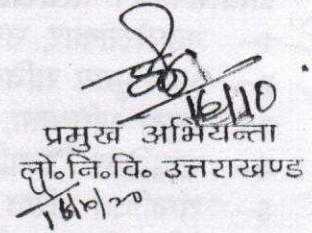 16/10
प्रमुख अभियन्ता
लो०नि०वि० उत्तराखण्ड